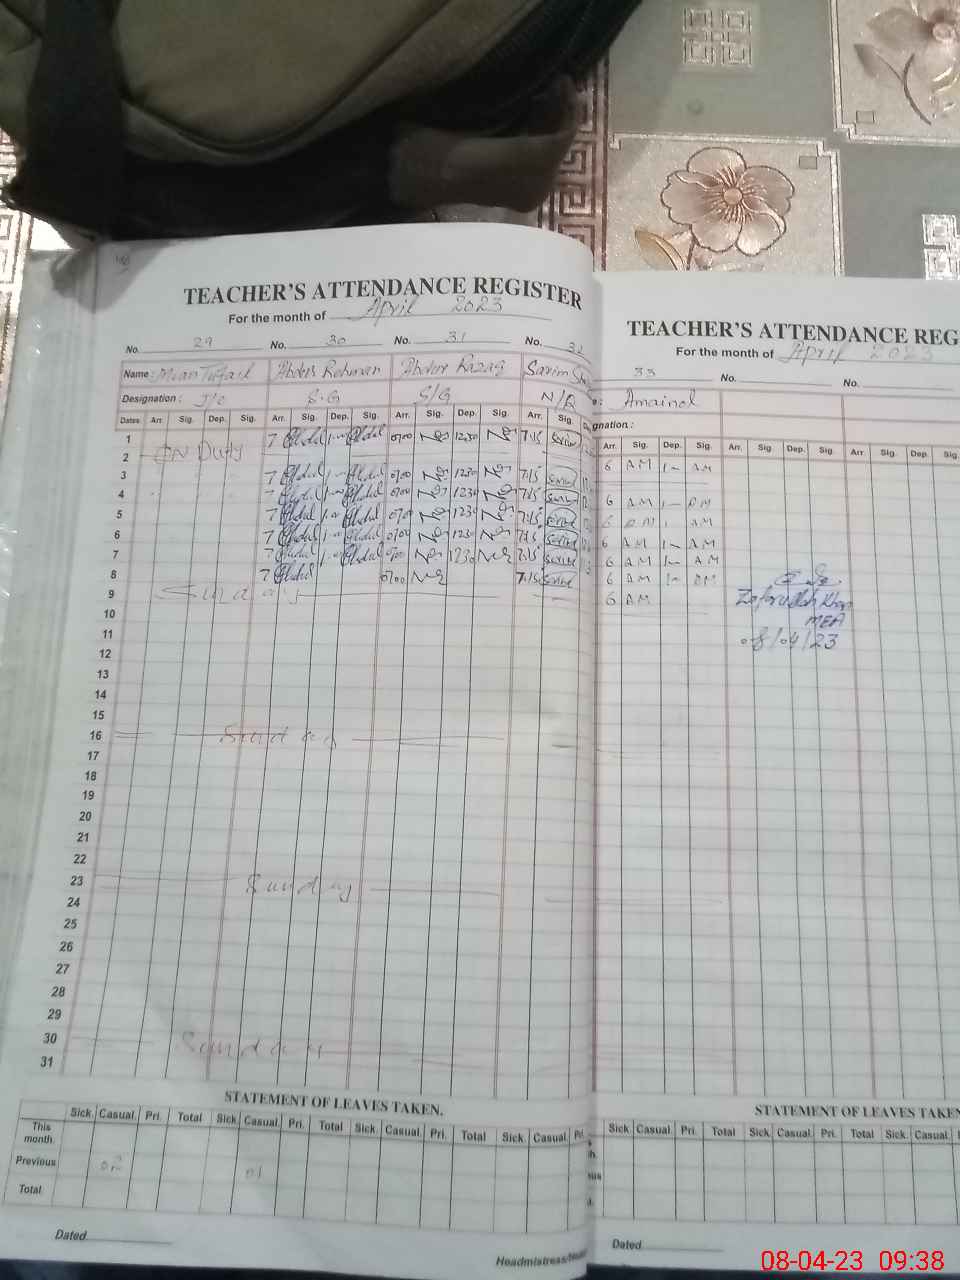 TEACHER'S ATTENDANCE REGISTER
For the month of April 2023
No. 29 No. 30 No. 31 No. 32
Name: Mian Tufail Abdur Rehman Abdur Razaq Sarim
Designation: J/C S.G S/G N/Q
Dates Arr. Sig. Dep. Sig. Arr. Sig. Dep. Sig. Arr. Sig. Dep. Sig. Arr. Sig.
1 7 Abdul 1-00 Abdul 0700 1230 7:15 Sarim
2 ON Duty
3 7 Abdul 1-00 Abdul 0700 1230 7:15 Sarim
4 7 Abdul 1-00 Abdul 0700 1230 7:15 Sarim
5 7 Abdul 1-00 Abdul 0700 1230 7:15 Sarim
6 7 Abdul 1-00 Abdul 0700 1230 7:15 Sarim
7 7 Abdul 1-00 Abdul 0700 1230 7:15 Sarim
8 7 Abdul 0700 7:15 Sarim
9 Sunday
10
11
12
13
14
15
16 Sunday
17
18
19
20
21
22
23 Sunday
24
25
26
27
28
29
30 Sunday
31
STATEMENT OF LEAVES TAKEN.
Sick. Casual. Pri. Total Sick. Casual. Pri. Total Sick. Casual. Pri. Total Sick. Casual. Pri.
This month.
Previous 02 01
Total
Dated
Headmistress/
TEACHER'S ATTENDANCE REG
For the month of April 2023
33 No. No.
Amainol
gnation:
Arr. Sig. Dep. Sig. Arr. Sig. Dep. Sig. Arr. Sig. Dep. Sig.
6 AM 1- AM
6 AM 1- AM
6 AM 1 AM
6 AM 1- AM
6 AM 1- AM
6 AM 1- AM
6 AM
Zafarullah Khan
MEA
08/04/23
STATEMENT OF LEAVES TAKEN
Sick. Casual. Pri. Total Sick. Casual. Pri. Total Sick. Casual.
Dated
08-04-23 09:38